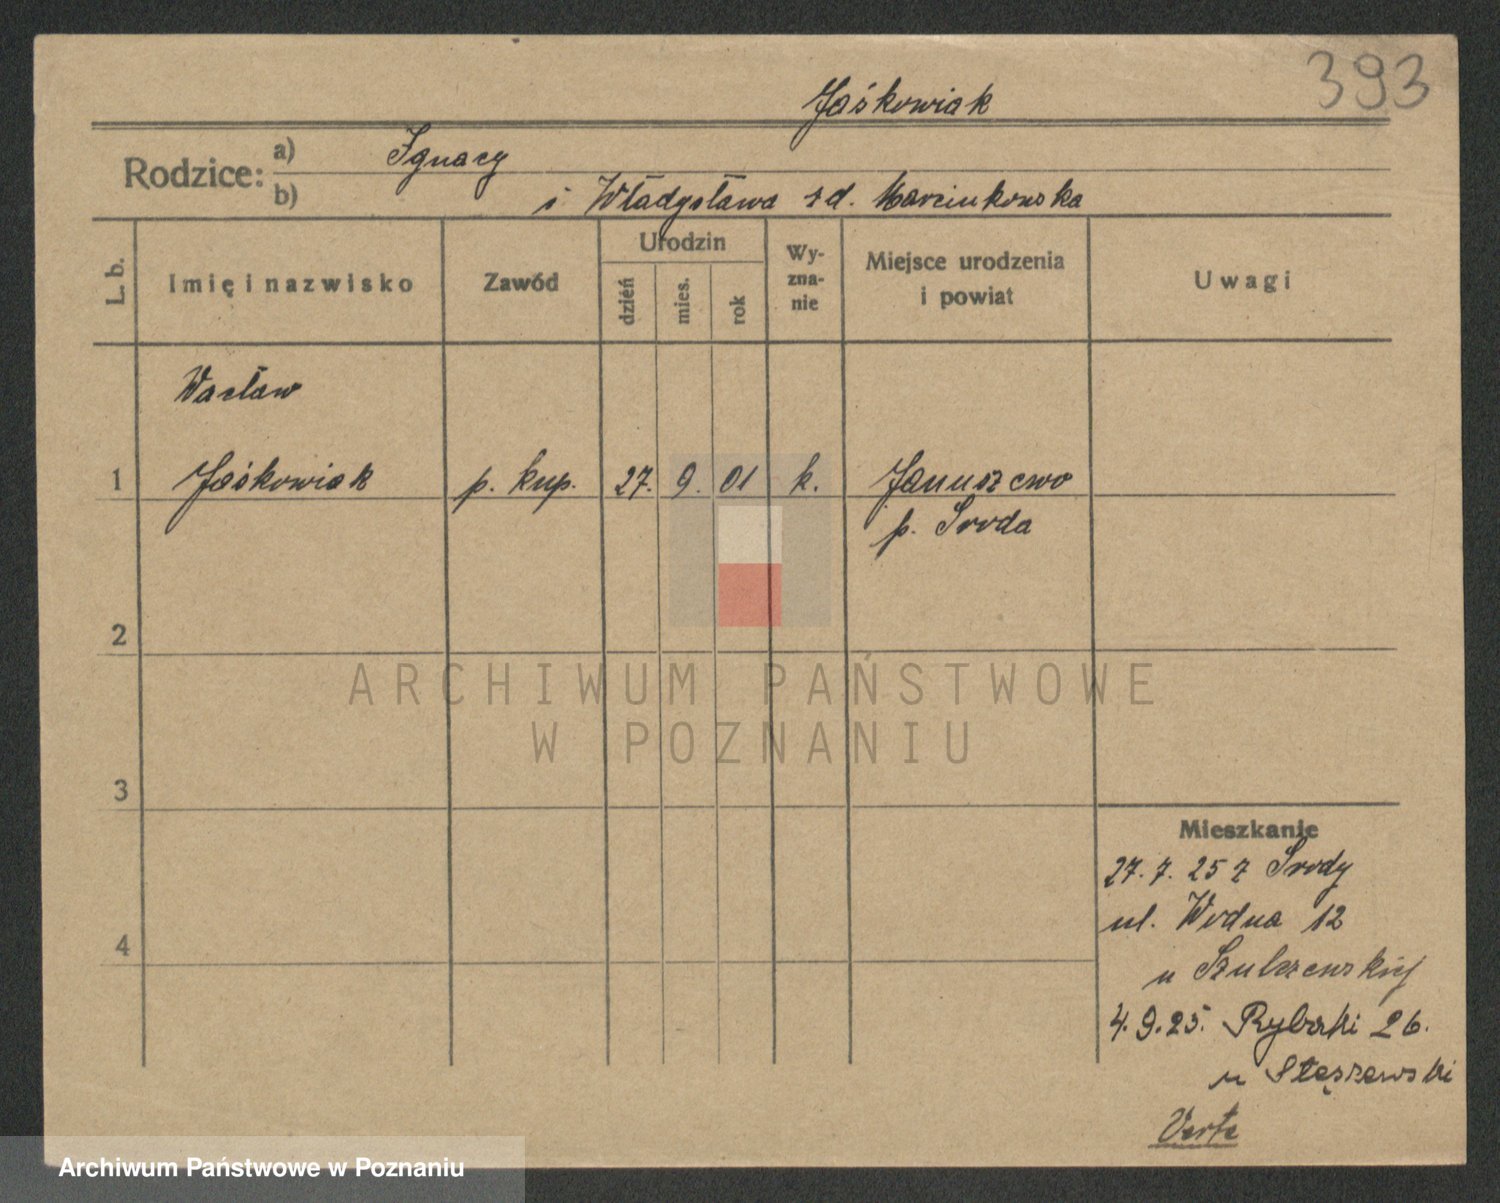 393
Jaśkowiak
Rodzice: a) Ignacy
b) i Władysława zd. Marcinkowska
L. b.
Imię i nazwisko
Zawód
Urodzin
dzień
mies.
rok
Wy-
zna-
nie
Miejsce urodzenia
i powiat
Uwagi
Wacław
1 Jaśkowiak p. kup. 27. 9. 01 k. Januszewo
p. Środa
2
3
4
Mieszkanie
27. 7. 25 z Środy
ul. Wodna 12
u Szulczewskiej
4. 9. 25. Rybaki 26.
u Stęszewski
Verte
ARCHIWUM PAŃSTWOWE
W POZNANIU
Archiwum Państwowe w Poznaniu